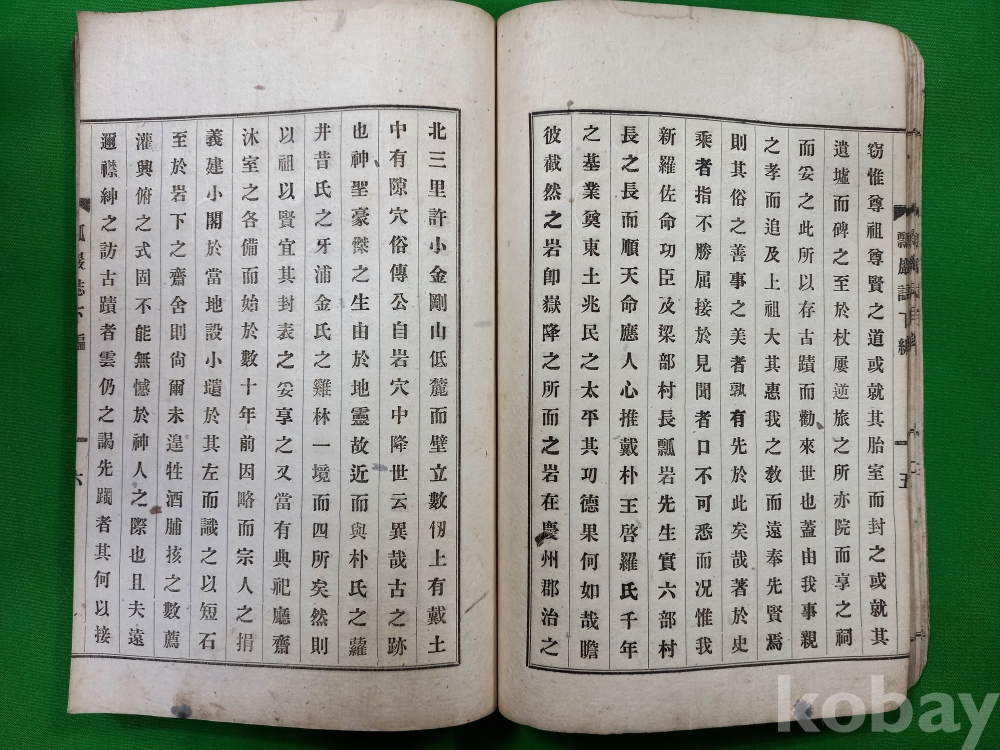 竊惟尊祖尊賢之道或就其胎室而封之或就其
遺墟而碑之至於杖屨逆旅之所亦院而享之祠
而妥之此所以存古蹟而勸來世也蓋由我事親
之孝而追及上祖大其惠我之敎而遠奉先賢焉
則其俗之善事之美者孰有先於此矣哉著於史
乘者指不勝屈接於見聞者口不可悉而况惟我
新羅佐命功臣及梁部村長瓢岩先生實六部村
長之長而順天命應人心推戴朴王啓羅氏千年
之基業奠東土兆民之太平其功德果何如哉瞻
彼截然之岩卽嶽降之所而之岩在慶州郡治之
瓢巖誌下編
五
北三里許小金剛山低麓而壁立數仞上有戴土
中有隙穴俗傳公自岩穴中降世云異哉古之跡
也神聖豪傑之生由於地靈故近而與朴氏之蘿
井昔氏之牙浦金氏之雞林一境而四所矣然則
以祖以賢宜其封表之妥享之又當有典祀廳齋
沐室之各備而始於數十年前因略而宗人之捐
義建小閣於當地設小壝於其左而識之以短石
至於岩下之齋舍則尙爾未遑牲酒脯核之數薦
灌興俯之式固不能無憾於神人之際也且夫遠
邇襟紳之訪古蹟者雲仍之謁先躅者其何以接
瓢巖誌下編
六
kobay